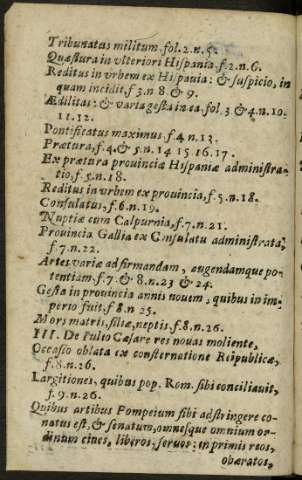 Tribunatus militum. fol. 2. n. 5.
Quæstura in vlteriori Hispania. f. 2. n. 6.
Reditus in vrbem ex Hispania: & suspicio, in
quam incidit. f 3. n 8 & 9.
Ædilitas: & varia gesta in ea. fol. 3. & 4. n. 10.
11. 12.
Pontificatus maximus. f. 4. n. 13.
Prætura, f. 4. & 5. n. 14 15. 16. 17.
Ex prætura prouinciæ Hispaniæ administra-
tio, f. 5. n. 18.
Reditus in vrbem ex prouincia, f. 5. n. 18.
Consulatus, f. 6. n. 19.
Nuptiæ cum Calpurnia, f. 7. n. 21.
Prouincia Gallia ex Consulatu administrata,
f. 7. n. 22.
Artes variæ ad firmandam, augendamque po-
tentiam. f. 7. & 8. n. 23 & 24.
Gesta in prouincia annis nouem, quibus in im-
perio fuit. f 8. n 25.
Mors matris, filiæ, neptis, f. 8. n. 26.
III. De Iulio Cæsare res nouas moliente,
Occasio oblata ex consternatione Reipublicæ,
f. 8. n. 26.
Largitiones, quibus pop. Rom. sibi conciliauit,
f. 9. n. 26.
Quibus artibus Pompeium sibi adstringere co-
natus est, & senatum, omnesque omnium or-
dinum ciues, liberos, seruos: inprimis reos,
obæratos,